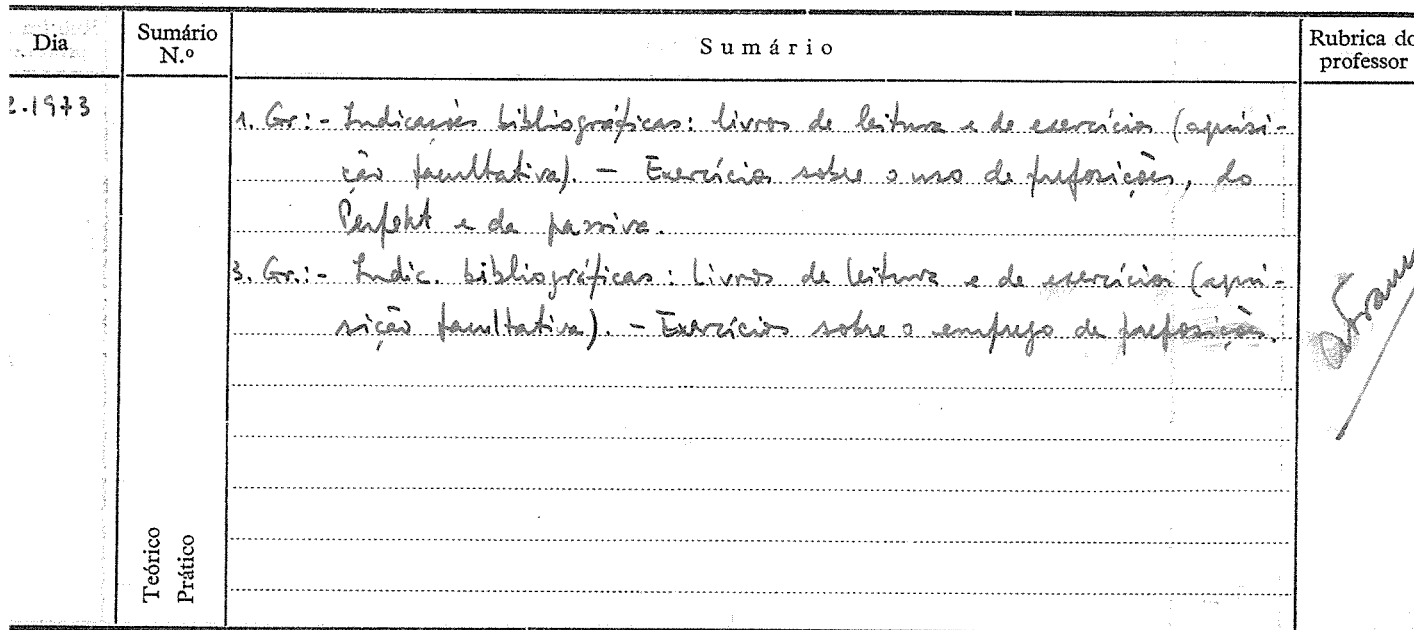 Dia
Sumário
N.º
Sumário
Rubrica do
professor
2.1973
1. Gr.: - Indicações bibliográficas: livros de leitura e de exercícios (aquisi-
ção facultativa). - Exercícios sobre o uso de preposições, do
Perfekt e da passiva.
3. Gr.: - Indic. bibliográficas: livros de leitura e de exercícios (aqui-
sição facultativa). - Exercícios sobre o emprego de preposições.
Teórico
Prático